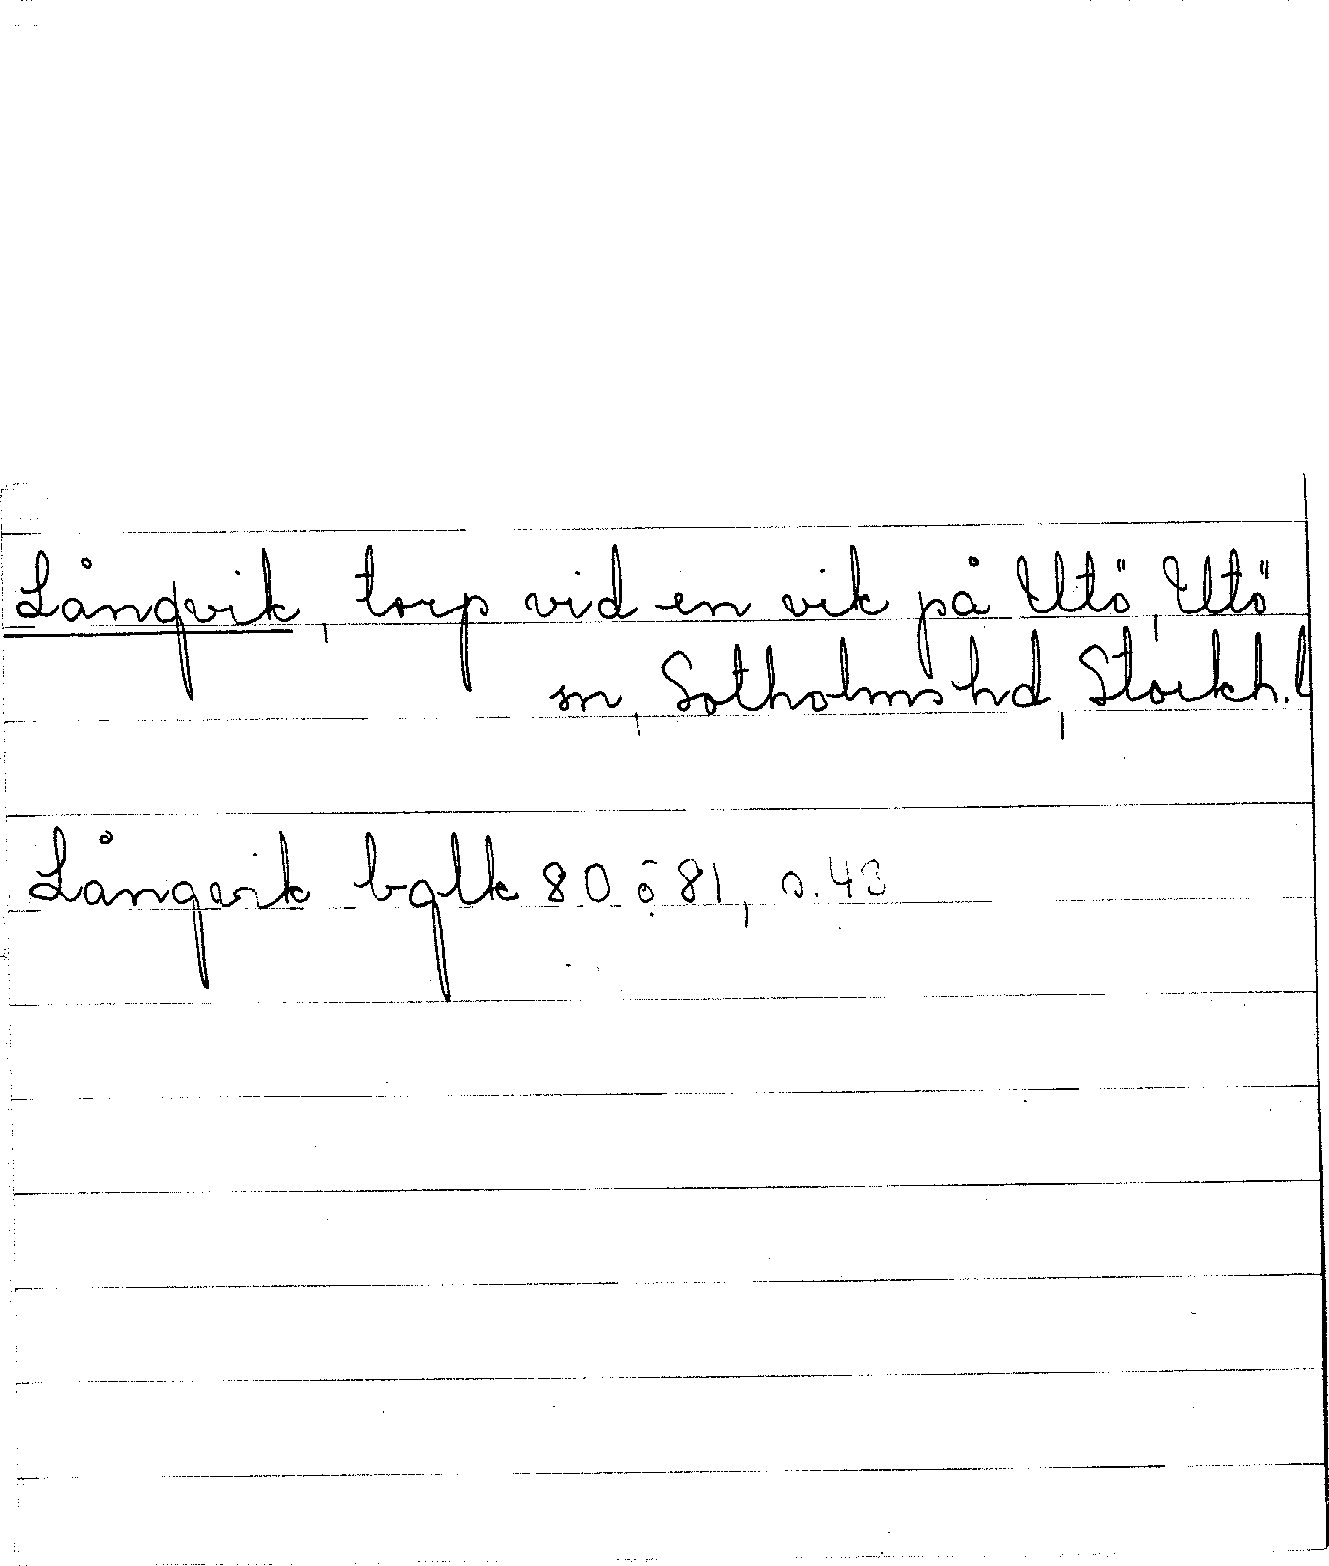 Långvik, torp vid en vik på Utö, Utö
sn, Sotholms hd, Stockh. l
Långvik bglk 80 ö 81, s. 43